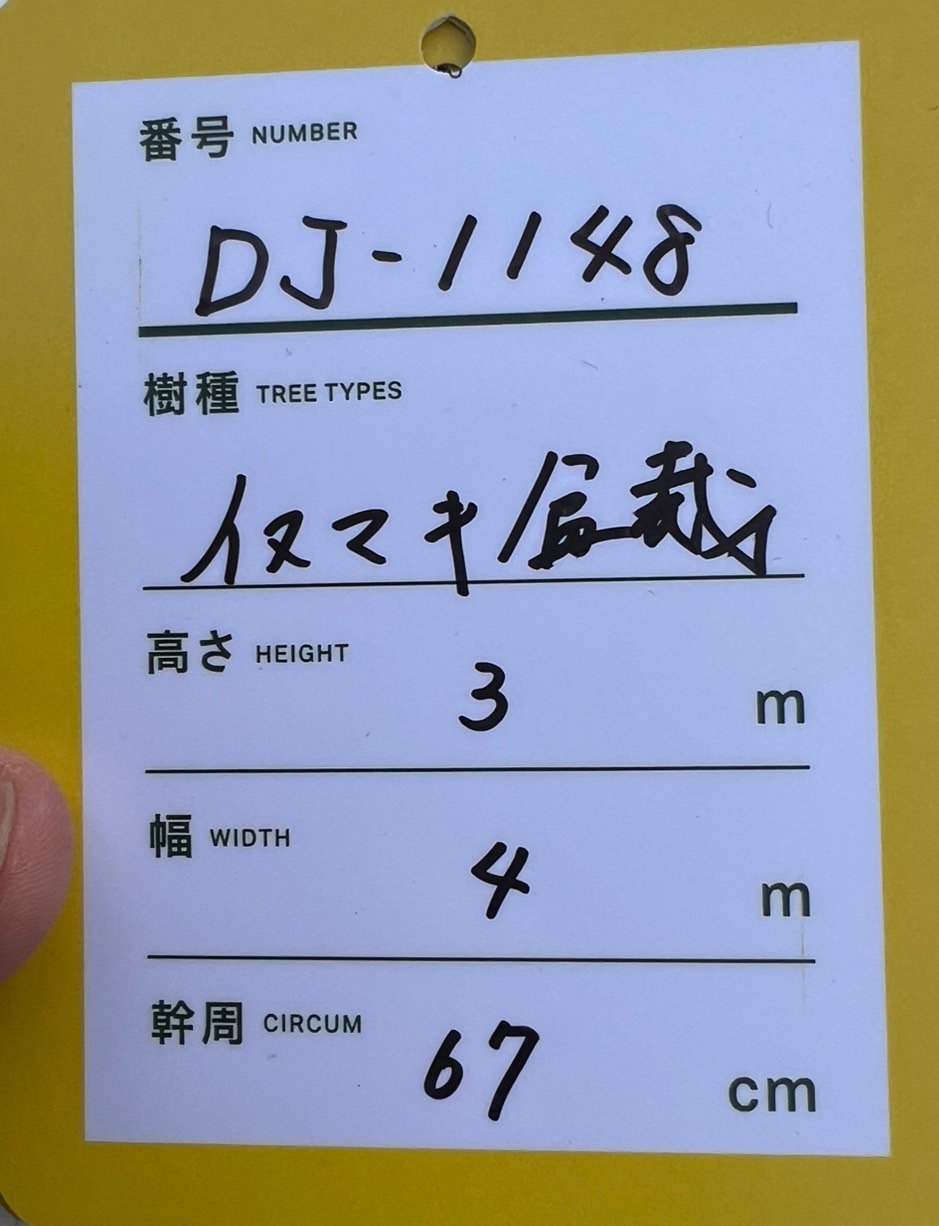 番号 NUMBER
DJ-1148
樹種 TREE TYPES
イヌマキ/盆栽
高さ HEIGHT 3 m
幅 WIDTH 4 m
幹周 CIRCUM 67 cm